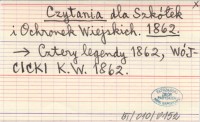 Czytania dla Szkółek
i Ochronek Wiejskich. 1862.
→ Cztery legendy 1862, WÓJ-
CICKI K.W. 1862.